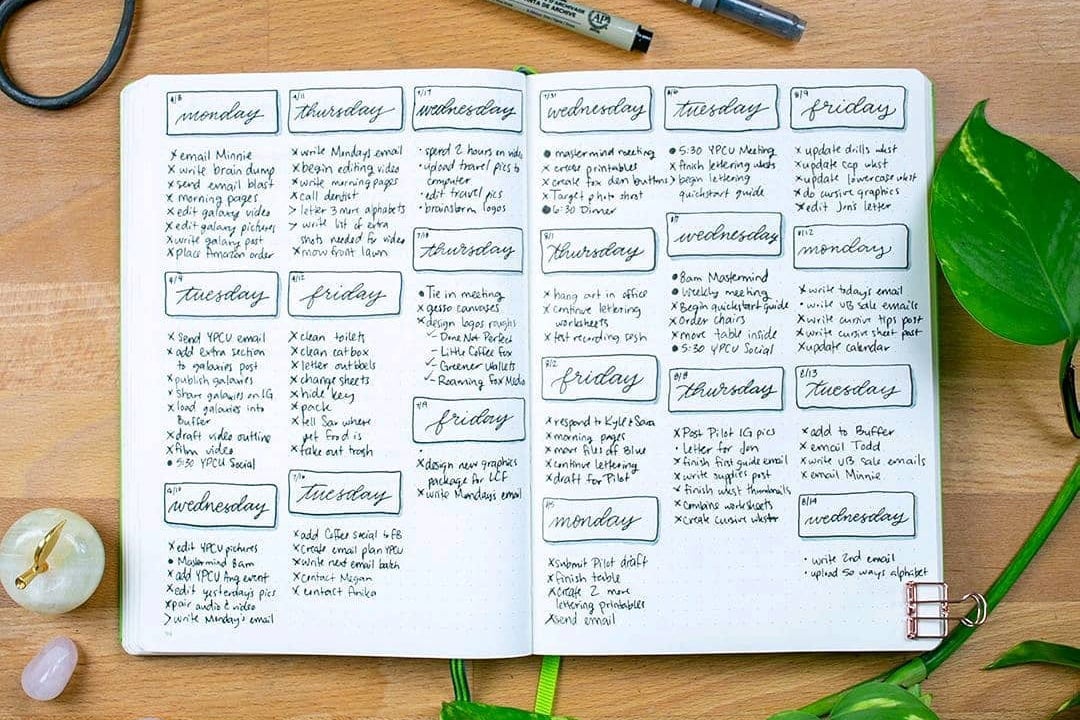 ARCHIVAL INK
TINTA DE ARCHIVO
AP
monday
x email Minnie
x write brain dump
x send email blast
x morning pages
x edit galaxy video
x edit galaxy pictures
x write galaxy post
x place Amazon order
4/9
tuesday
x send YPCU email
x add extra section
to galaxies post
x publish galaxies
x share galaxies on IG
x load galaxies into
Buffer
x draft video outline
x film video
• 5:30 YPCU Social
wednesday
x edit YPCU pictures
• Mastermind 8am
x add YPCU Aug event
x edit yesterday's pics
x pair audio & video
> write Monday's email
thursday
x write Monday's email
x begin editing video
x write morning pages
x call dentist
> letter 3 more alphabets
> write list of extra
shots needed for video
x mow front lawn
friday
x clean toilets
x clean catbox
x letter outbbels
x change sheets
x hide key
x pack
x tell Sar where
pet food is
x take out trash
7/16
tuesday
x add Coffee social to FB
x create email plan YPCU
x write next email batch
x contact Megan
x contact Anika
7/17
wednesday
• spend 2 hours on video
• upload travel pics to
computer
• edit travel pics
• brainstorm logos
7/18
thursday
• Tie in meeting
x gesso canvases
x design logos roughs
Done Not Perfect
Little Coffee Fox
Greener Wallets
Roaming Fox Media
7/19
friday
x design new graphics
package for LCF
x write Monday's email
7/31
wednesday
• mastermind meeting
x create printables
x create fox den buttons
x Target photo shoot
• 6:30 Dinner
8/1
thursday
x hang art in office
x continue lettering
worksheets
x test recording sesh
8/2
friday
x respond to Kyle & Sara
x morning pages
x move files off Blue
x continue lettering
x draft for Pilot
monday
x submit Pilot draft
x finish table
x create 2 more
lettering printables
x send email
8/6
tuesday
• 5:30 YPCU Meeting
x finish lettering wksts
> begin lettering
quickstart guide
8/7
wednesday
• 8am Mastermind
• weekly meeting
x Begin quickstart guide
x Order chairs
x move table inside
• 5:30 YPCU Social
8/8
thursday
x Post Pilot IG pics
• Letter for Jen
x finish first guide email
x write supplies post
x finish wkst thumbnails
x combine worksheets
x create cursive wkst
8/9
friday
x update drills wkst
x update cap wkst
x update lowercase wkst
x do cursive graphics
x edit Jen's letter
8/12
monday
x write todays email
• write VB sale emails
x write cursive tips post
x write cursive sheet post
x update calendar
8/13
tuesday
x add to Buffer
x email Todd
x write VB sale emails
x email Minnie
8/14
wednesday
• write 2nd email
• upload 50 ways alphabet